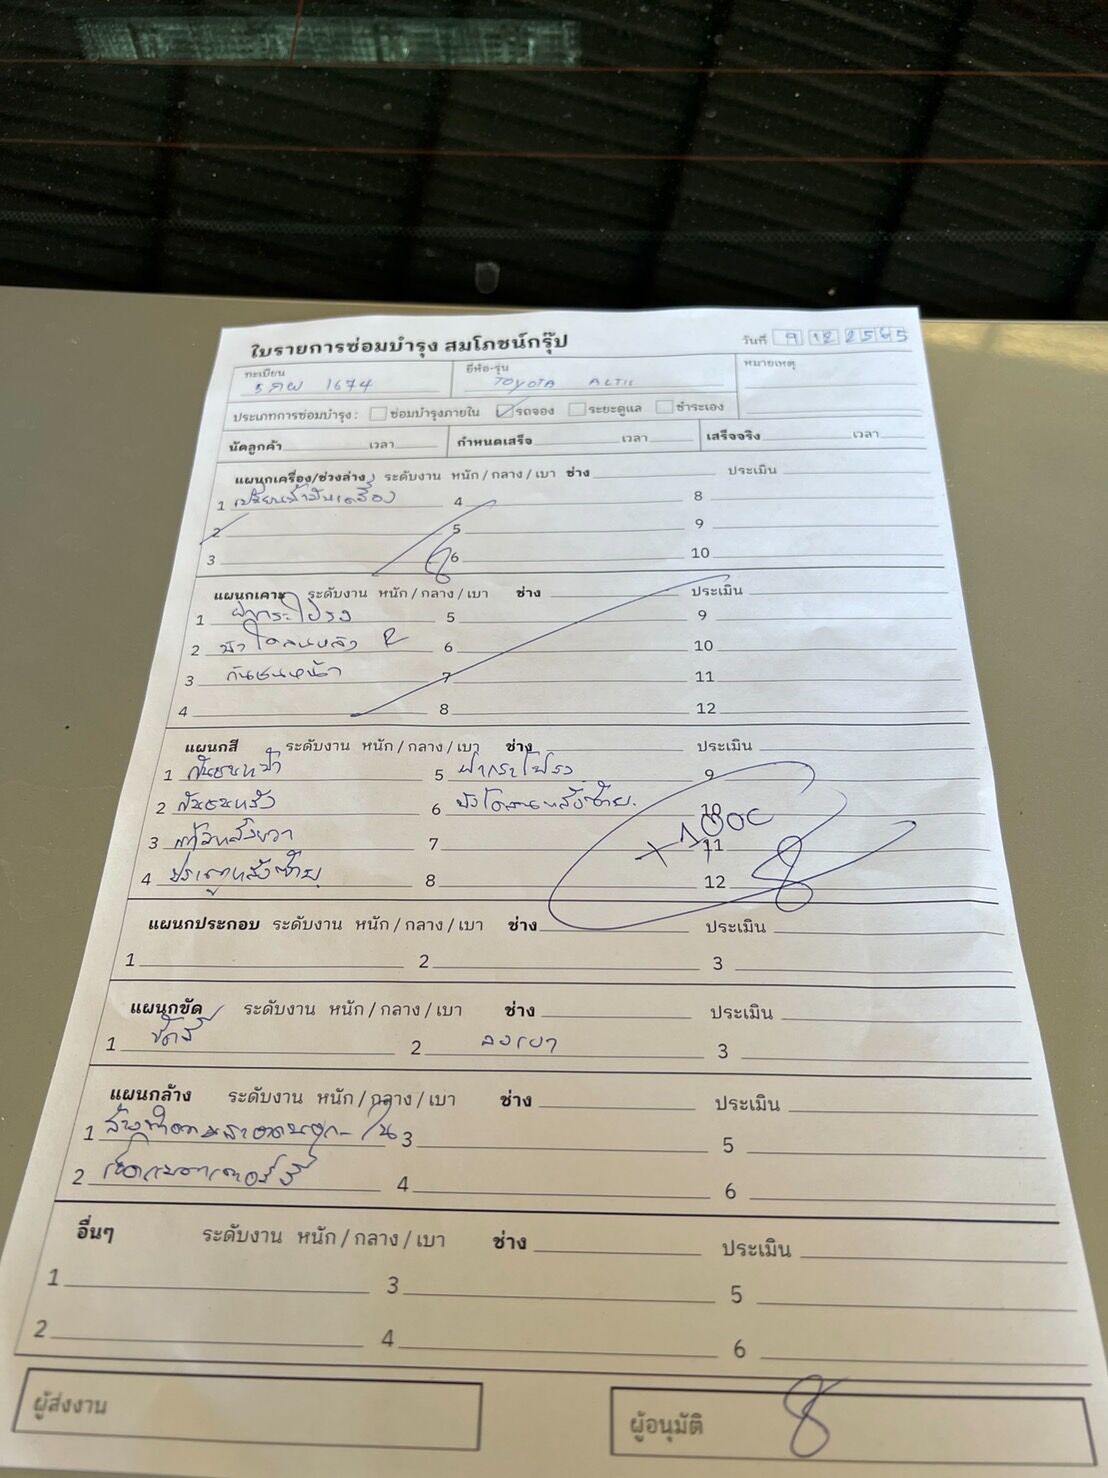 ใบรายการซ่อมบำรุง สมโภชน์กรุ๊ป
วันที่ 9 12 2565
ทะเบียน 5 1674 ยี่ห้อ-รุ่น TOYOTA ALTIS หมายเหตุ
ประเภทการซ่อมบำรุง : ซ่อมบำรุงภายใน รถจอง ระยะดูแล ชำระเอง
นัดลูกค้า เวลา กำหนดเสร็จ เวลา เสร็จจริง เวลา
แผนกเครื่อง/ช่วงล่าง ระดับงาน หนัก / กลาง / เบา ช่าง ประเมิน
1 เปลี่ยนน้ำมันเครื่อง 4 8
2 5 9
3 6 10
แผนกเคาะ ระดับงาน หนัก / กลาง / เบา ช่าง ประเมิน
1 ฝากระโปรง 5 9
2 บังโคลนหลัง R 6 10
3 กันชนหน้า 7 11
4 8 12
แผนกสี ระดับงาน หนัก / กลาง / เบา ช่าง ประเมิน
1 กันชนหน้า 5 ฝากระโปรง 9
2 กันชนหลัง 6 บังโคลนหลังซ้าย. 10
3 หลังขวา 7 11 +1000
4 ประตูหลังซ้าย 8 12
แผนกประกอบ ระดับงาน หนัก / กลาง / เบา ช่าง ประเมิน
1 2 3
แผนกขัด ระดับงาน หนัก / กลาง / เบา ช่าง ประเมิน
1 ขัดสี 2 ลงเงา 3
แผนกล้าง ระดับงาน หนัก / กลาง / เบา ช่าง ประเมิน
1 ล้างทำความสะอาดนอก-ใน 3 5
2 4 6
อื่นๆ ระดับงาน หนัก / กลาง / เบา ช่าง ประเมิน
1 3 5
2 4 6
ผู้ส่งงาน ผู้อนุมัติ